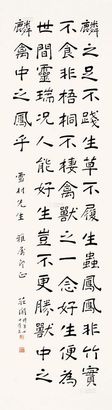 麟之足不踐生草不履生蟲鳳凰非竹實
不食非梧桐不棲禽獸之一念好生便為
世間靈瑞況人能好生豈不更勝獸中之
麟禽中之鳳乎
雪村先生 雅屬 正 莊閑